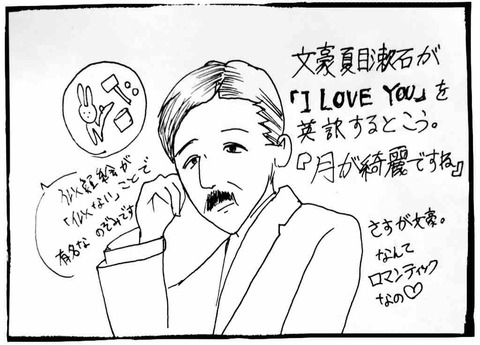 文豪夏目漱石が
「I LOVE YOU」を
英訳するとこう。
『月が綺麗ですね』
さすが文豪。
なんて
ロマンティック
なの♡
似顔絵が
「似ない」ことで
有名な のぞみです